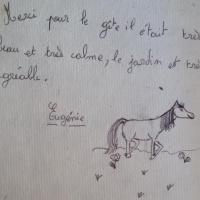 Merci pour le gîte il était très
beau et très calme, le jardin et très
agréable.
Eugénie